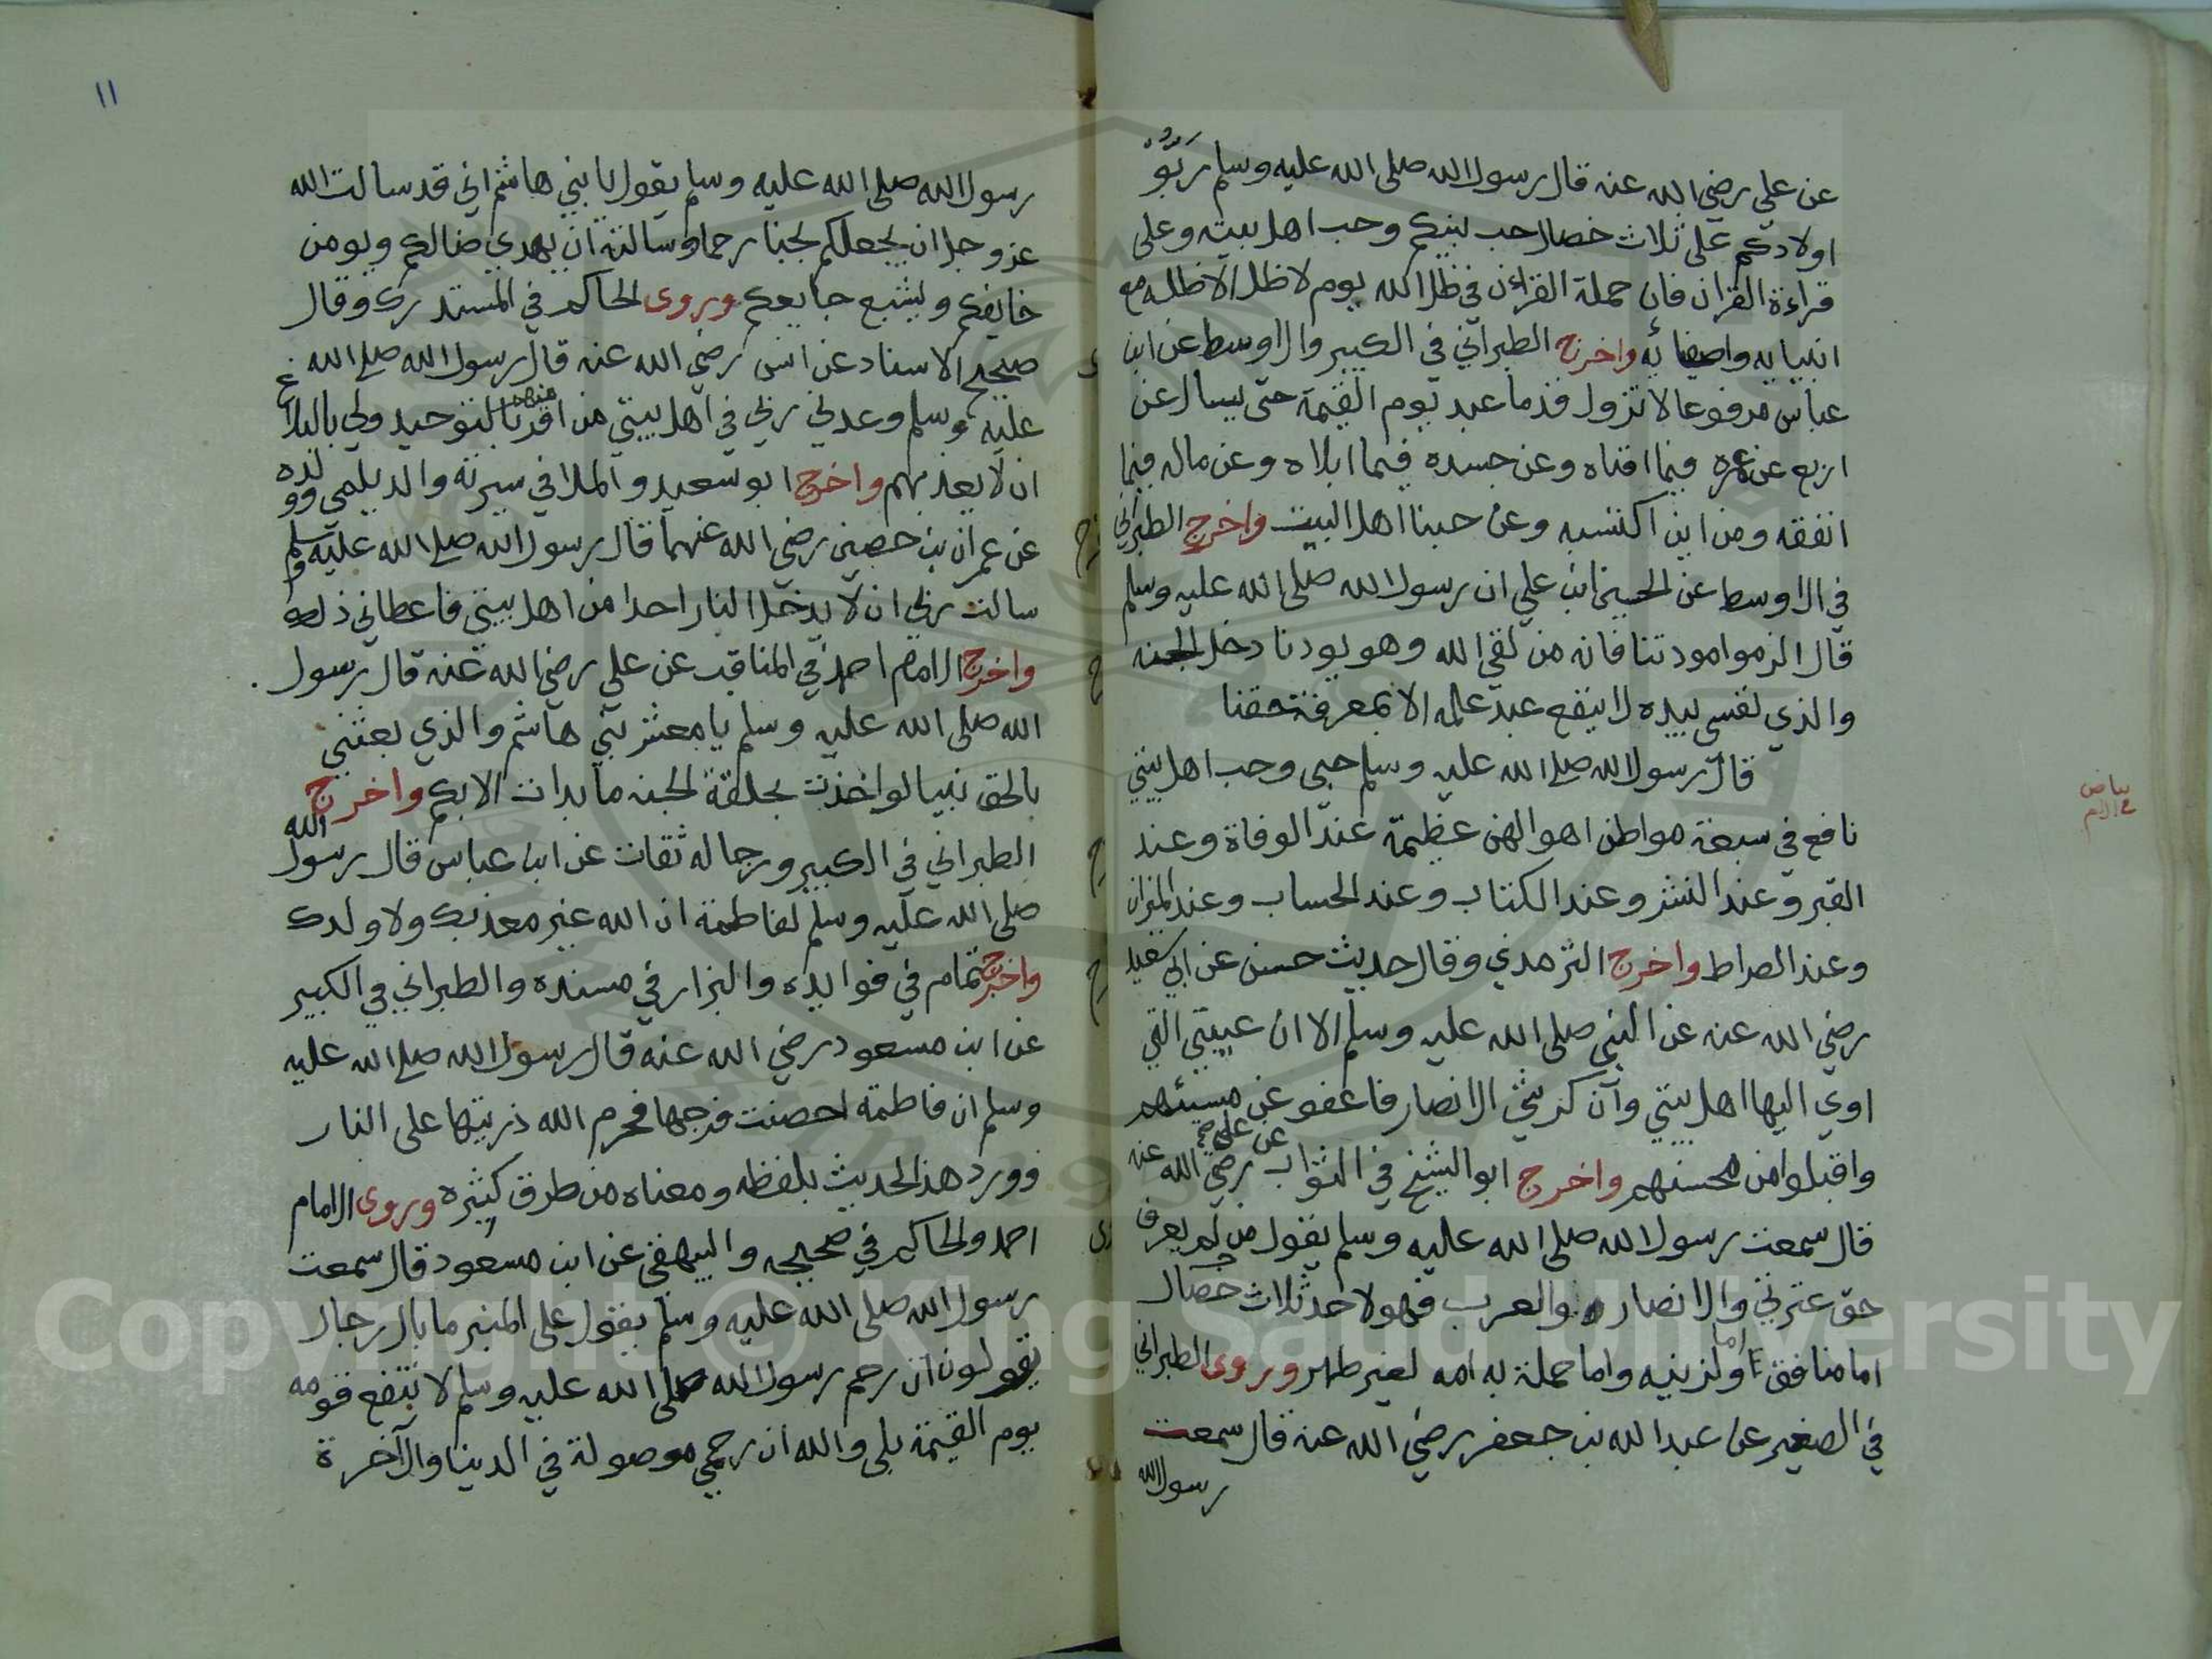 عن علي رضي الله عنه قال رسول الله صلى الله عليه وسلم رَبُّوْ
اولادكم على ثلاث خصال حب نبيكم وحب اهل بيته وعلى
قراءة القران فان حملة القراءن في ظل الله يوم لا ظل الا ظله مع
انبيايه واصفيائه واخرج الطبراني في الكبير والاوسط عن ابن
عباس مرفوعا لا تزول قدما عبد يوم القيمة حتى يسال عن
اربع عن عمره فيما افناه وعن جسده فيما ابلاه وعن ماله فيما
انفقه ومن اين اكتسبه وعن حبنا اهل البيت واخرج الطبراني
في الاوسط عن الحسين ابن علي ان رسول الله صلى الله عليه وسلم
قال الزموا مودتنا فانه من لقي الله وهو يودنا دخل الجنه
والذي نفسي بيده لا ينفع عبد عمله الا بمعرفة حقنا
قال رسول الله صلى الله عليه وسلم حبي وحب اهل بيتي
نافع في سبعة مواطن اهوالهن عظيمة عند الوفاة وعند
القبر وعند النشر وعند الكتاب وعند الحساب وعند الميزان
وعند الصراط واخرج الترمذي وقال حديث حسن عن ابي سعيد
رضي الله عنه عن النبي صلى الله عليه وسلم الا ان عيبتي التي
اوي اليها اهل بيتي وان كرشي الانصار فاعفو عن مسيئهم
واقبلوا من محسنهم واخرج ابو الشيخ في الثواب عن علي رضي الله عنه
قال سمعت رسول الله صلى الله عليه وسلم يقول من لم يعرف
حق عترتي والانصار والعرب فهو لاحد ثلاث خصال
اما منافق واما لزنيه واما حملة به امه لغير طهر وروى الطبراني
في الصغير عن عبد الله بن جعفر رضي الله عنه قال سمعت
رسول الله
بياض
في الام
١١
رسول الله صلى الله عليه وسلم يقول يا بني هاشم اني قد سالت الله
عز وجل ان يجعلكم نجبا رحما وسالته ان يهدي ضالكم ويومن
خايفكم ويشبع جايعكم وروى الحاكم في المستدرك وقال
صحيح الاسناد عن انس رضي الله عنه قال رسول الله صلى الله
عليه وسلم وعدني ربي في اهل بيتي من اقر منهم بالتوحيد ولي بالبلاغ
ان لا يعذبهم واخرج ابو سعيد والملا في سيرته والديلمي وولده
عن عمران بن حصين رضي الله عنهما قال رسول الله صلى الله عليه وسلم
سالت ربي ان لا يدخل النار احدا من اهل بيتي فاعطاني ذلك
واخرج الامام احمد في المناقب عن علي رضي الله عنه قال رسول
الله صلى الله عليه وسلم يا معشر بني هاشم والذي بعثني
بالحق نبيا لو اخذت بحلقة الجنه ما بدات الا بكم واخرج
الطبراني في الكبير ورجاله ثقات عن ابن عباس قال رسول الله
صلى الله عليه وسلم لفاطمة ان الله غير معذبك ولا ولدك
واخرج تمام في فوايده والبزار في مسنده والطبراني في الكبير
عن ابن مسعود رضي الله عنه قال رسول الله صلى الله عليه
وسلم ان فاطمة احصنت فرجها فحرم الله ذريتها على النار
وورد هذا الحديث بلفظه ومعناه من طرق كثيره وروى الامام
احمد والحاكم في صحيحه والبيهقي عن ابن مسعود قال سمعت
رسول الله صلى الله عليه وسلم يقول على المنبر ما بال رجال
يقولون ان رحم رسول الله صلى الله عليه وسلم لا تنفع قومه
يوم القيمة بلى والله ان رحمي موصولة في الدنيا والاخرة
Copyright © King Saud University